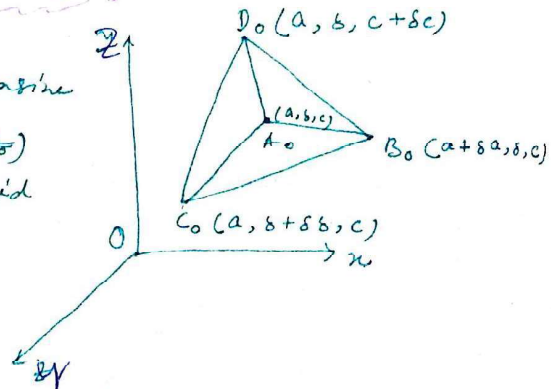 D₀ (a, b, c+δc)
Z
(a,b,c)
A₀
B₀ (a+δa,b,c)
C₀ (a, b+δb, c)
O
x
y